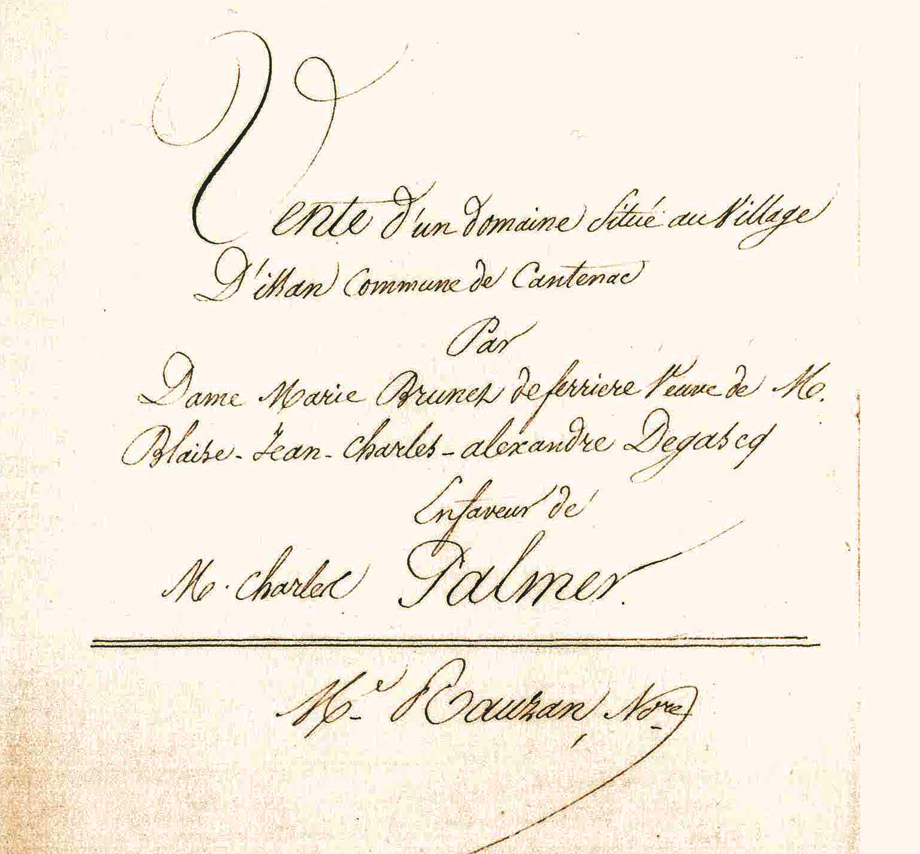 Vente d'un Domaine Situé au Village
D'issan Commune de Cantenac
Par
Dame Marie Brunet de ferriere Veuve de M.
Blaise-Jean-Charles-alexandre Degascq
En faveur de
M. Charles Palmer.
Me. Rauzan, Nore